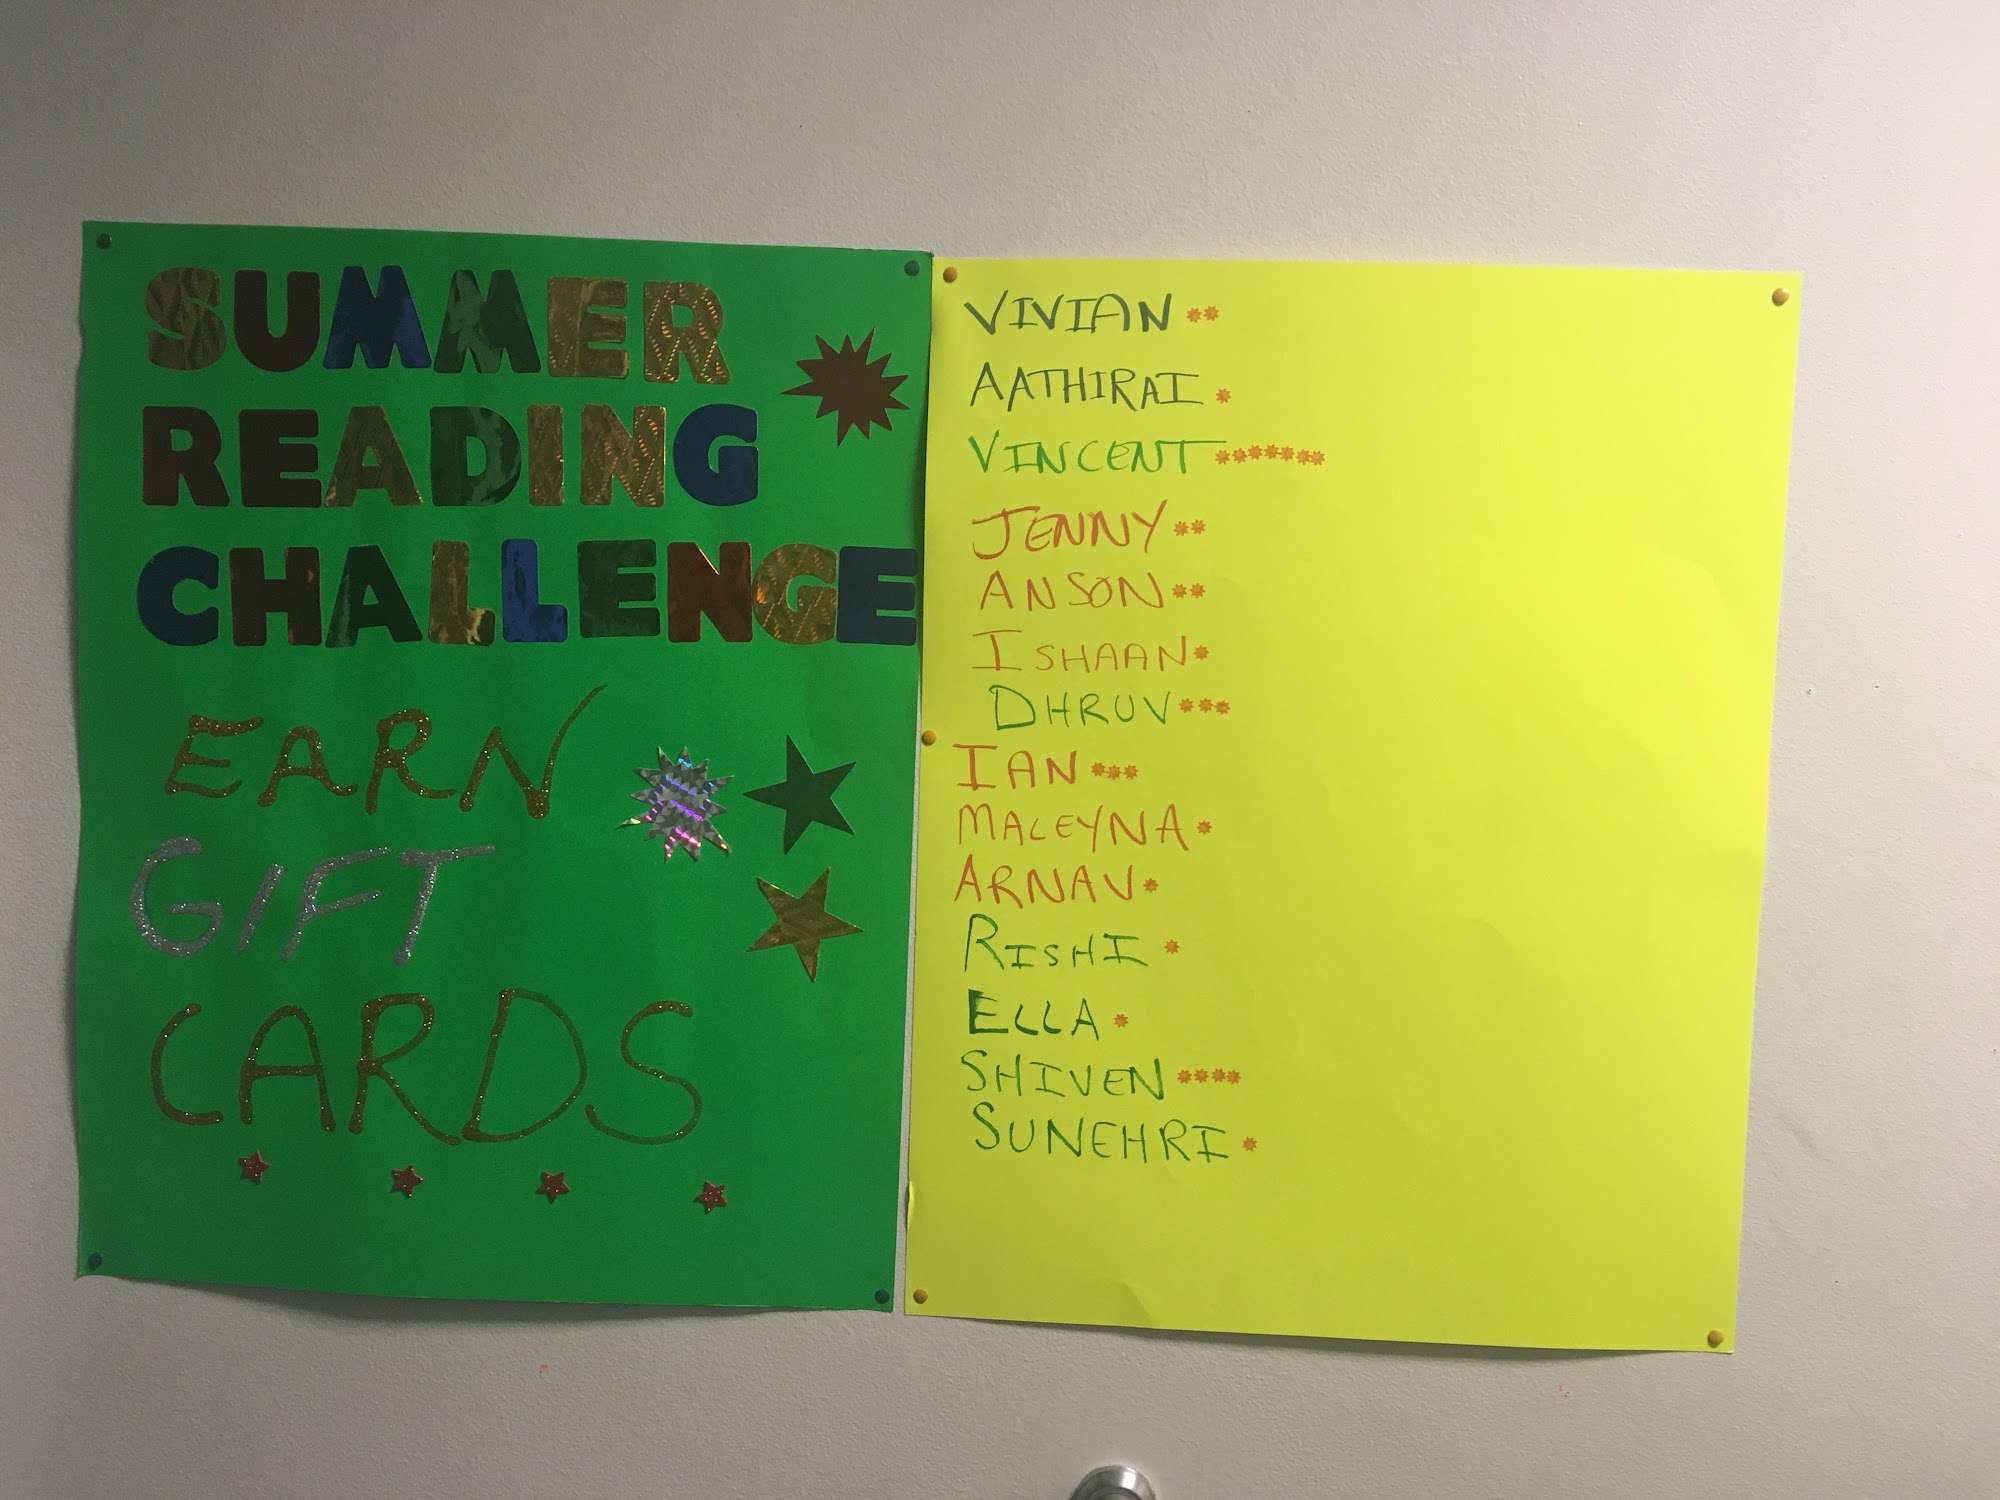 SUMMER
READING
CHALLENGE
EARN
GIFT
CARDS
VIVIAN
AATHIRAI
VINCENT
JENNY
ANSON
ISHAAN
DHRUV
IAN
MALEYNA
ARNAV
RISHI
ELLA
SHIVEN
SUNEHRI